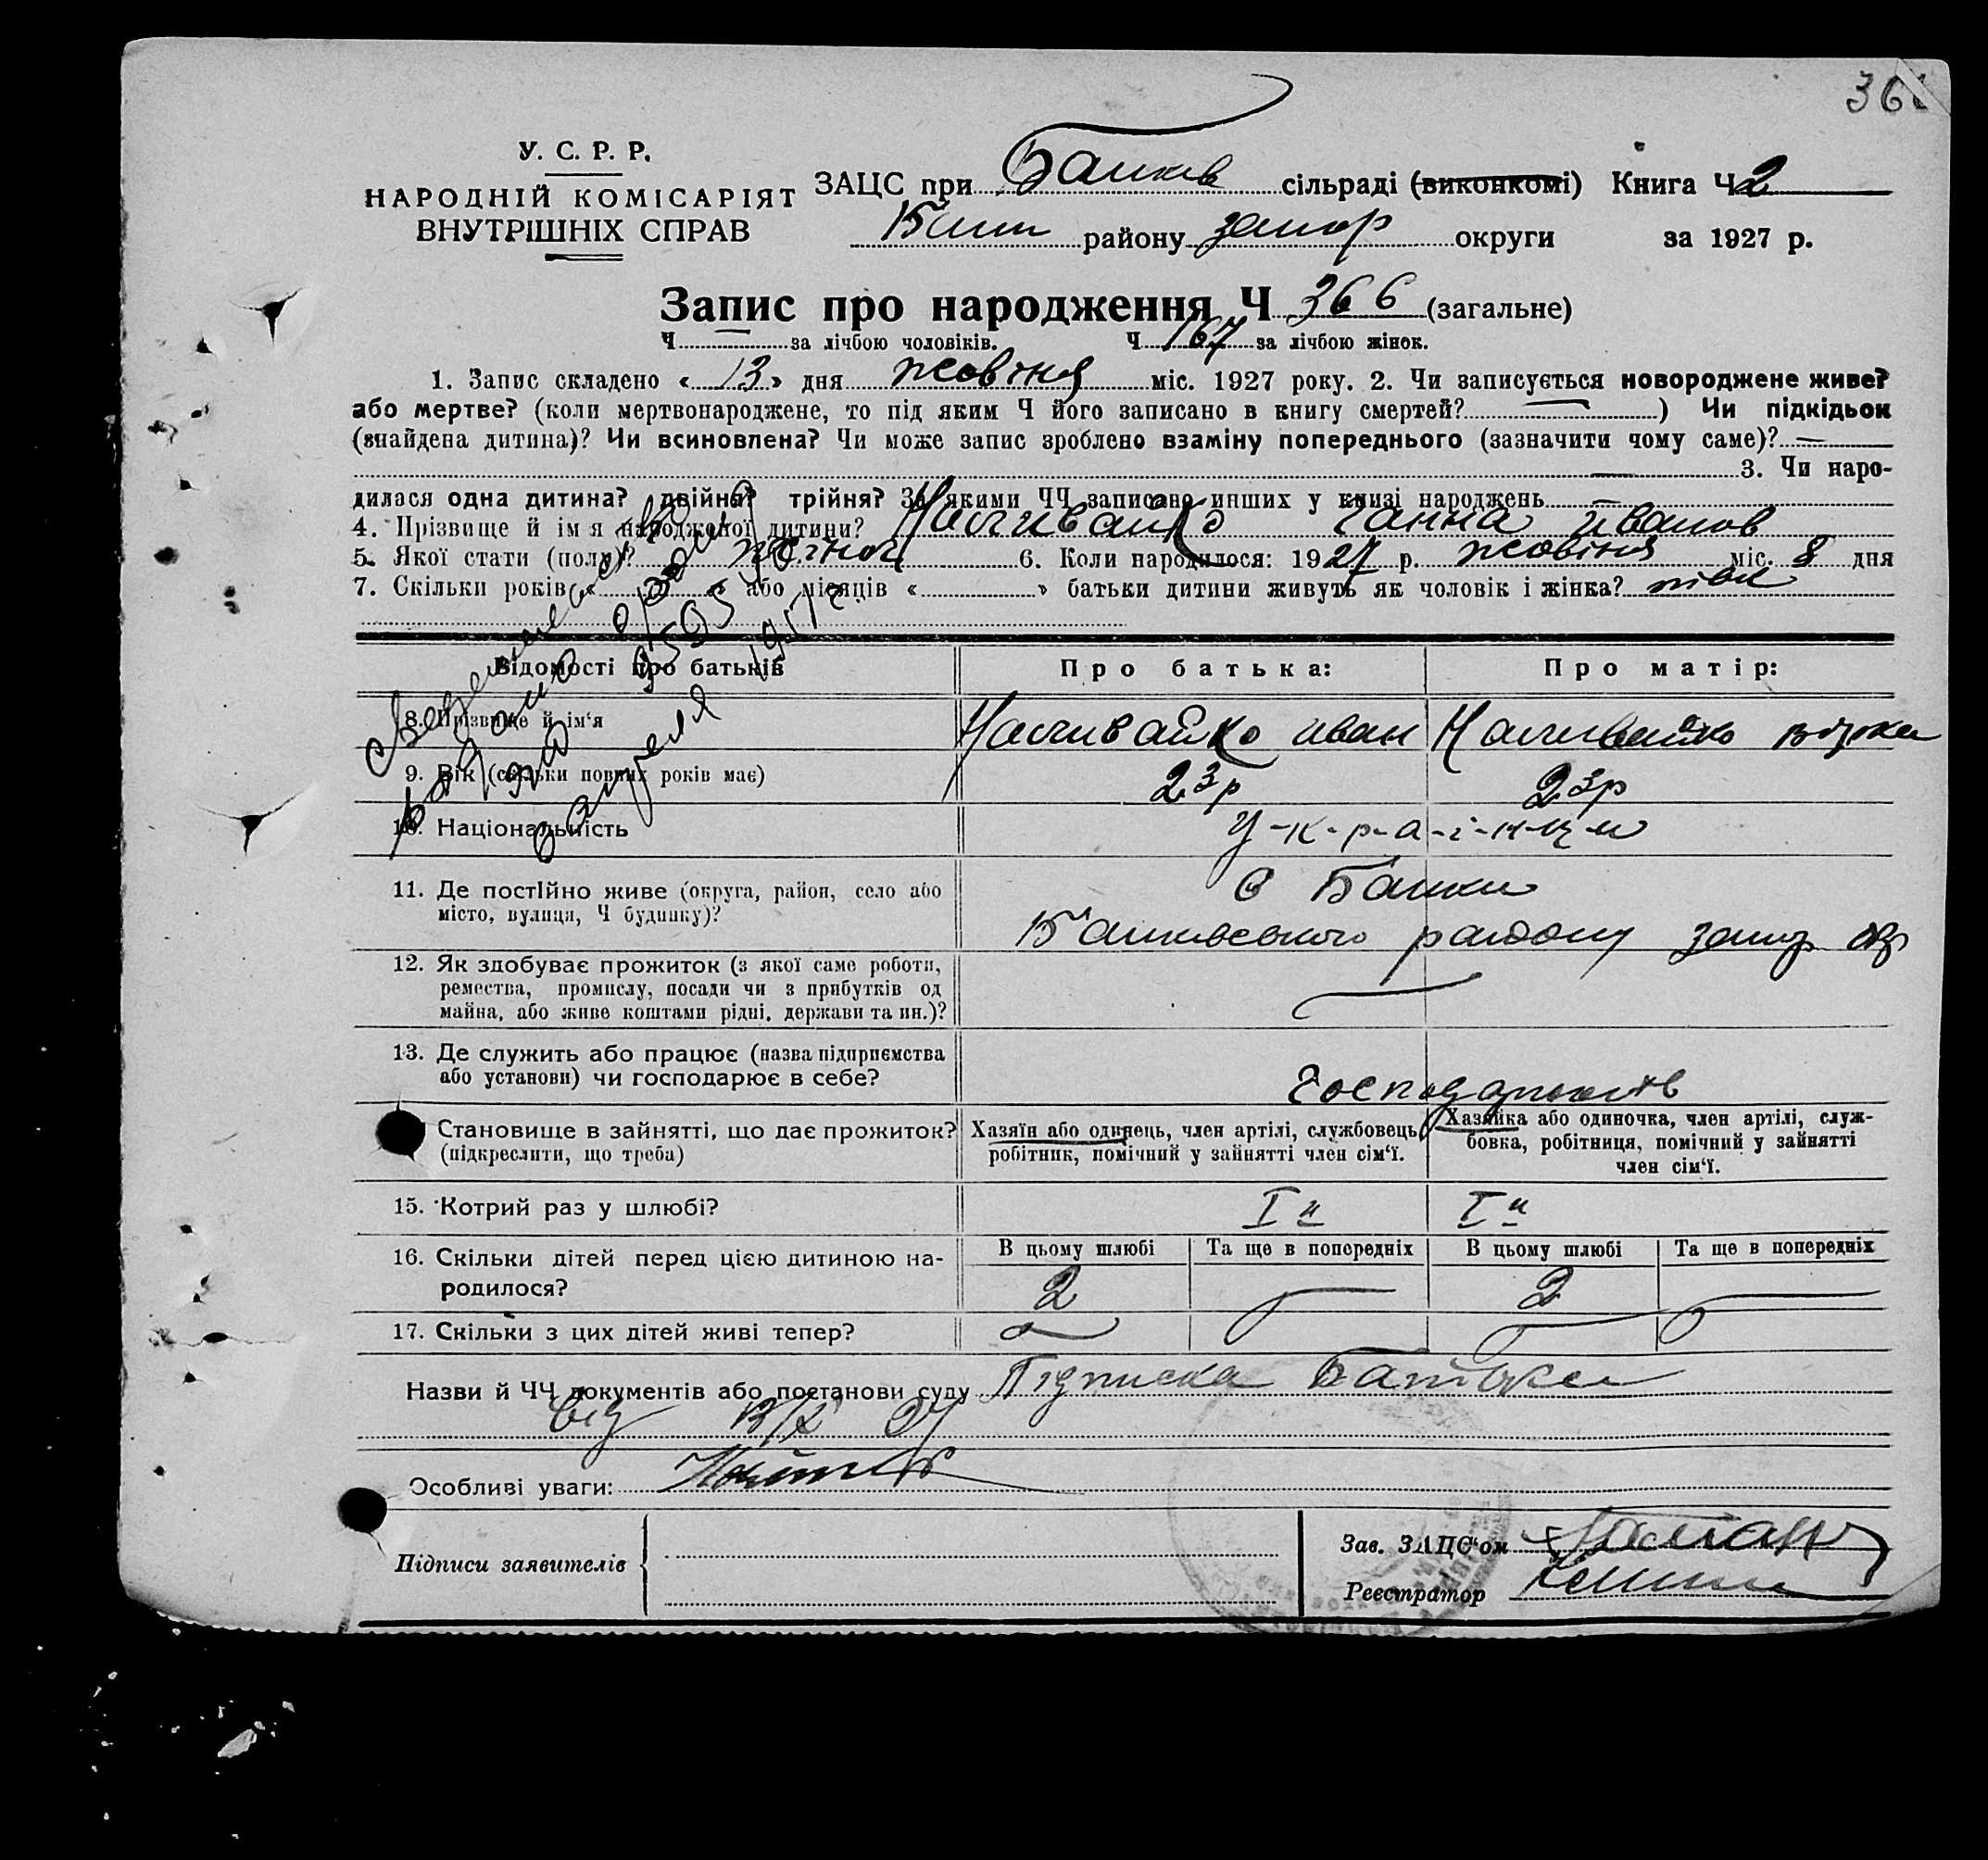 366
У. С. Р. Р.
НАРОДНІЙ КОМІСАРІЯТ
ВНУТРІШНІХ СПРАВ
ЗАЦС при сільраді (виконкомі) Книга Ч 2
району запор округи за 1927 р.
Запис про народження Ч 366 (загальне)
Ч за лічбою чоловіків. Ч 167 за лічбою жінок.
1. Запис складено « 13 » дня жовтня міс. 1927 року. 2. Чи записується новороджене живе?
або мертве? (коли мертвонароджене, то під яким Ч його записано в книгу смертей? — ) Чи підкідьок
(знайдена дитина)? Чи всиновлена? Чи може запис зроблено взаміну попереднього (зазначити чому саме)? —
— 3. Чи наро-
дилася одна дитина? двійня? трійня? За якими ЧЧ записано инших у книзі народжень —
4. Прізвище й ім'я народженої дитини? Наливайко Ганна Иванов
5. Якої стати (полу)? жіноч 6. Коли народилося: 1927 р. жовтня міс. 8 дня
7. Скільки років « » або місяців « » батьки дитини живуть як чоловік і жінка?
Відомості про батьків
Про батька:
Про матір:
8. Прізвище й ім'я
Наливайко иван
Наливайко
9. Вік (скільки повних років має)
23р
23р
10. Національність
У-к-р-а-і-н-ц-и
11. Де постІйно живе (округа, район, село або
місто, вулиця, Ч будинку)?
с
району запор окр
12. Як здобуває прожиток (з якої саме роботи,
ремества, промислу, посади чи з прибутків од
майна, або живе коштами рідні, держави та ин.)?
—
13. Де служить або працює (назва підприємства
або установи) чи господарює в себе?
Становище в зайнятті, що дає прожиток?
(підкреслити, що треба)
Хазяїн або одинець, член артілі, службовець,
робітник, помічний у зайнятті член сім'ї.
Хазяйка або одиночка, член артілі, служ-
бовка, робітниця, помічний у зайнятті
член сім'ї.
15. Котрий раз у шлюбі?
I й
I й
16. Скільки дітей перед цією дитиною на-
родилося?
В цьому шлюбі
Та ще в попередніх
В цьому шлюбі
Та ще в попередніх
2 — 2 —
17. Скільки з цих дітей живі тепер?
— —
Назви й ЧЧ документів або постанови суду Підписка Батька
від 13/X 27
Особливі уваги:
Підписи заявителів
Зав. ЗАЦС'ом
Реєстратор